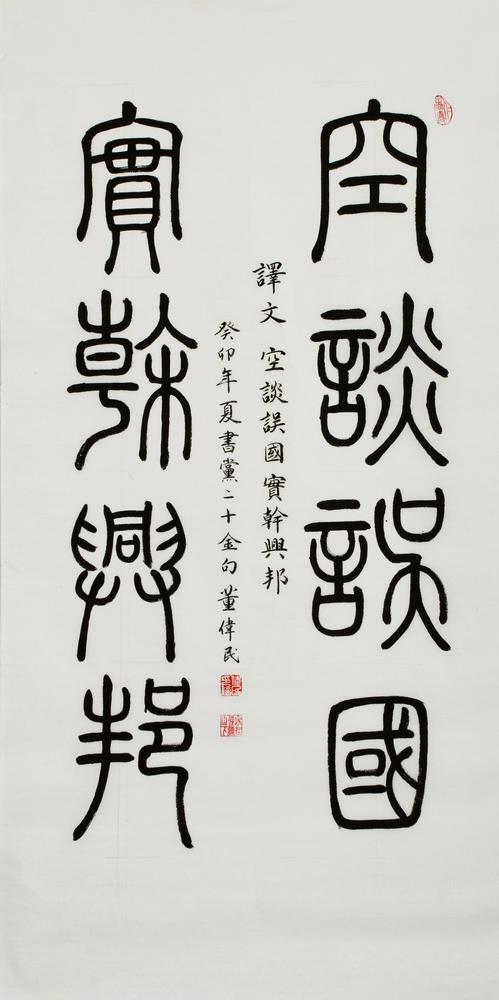 空談誤國
譯文 空談誤國實幹興邦
癸卯年夏書黨二十金句 董偉民
實幹興邦